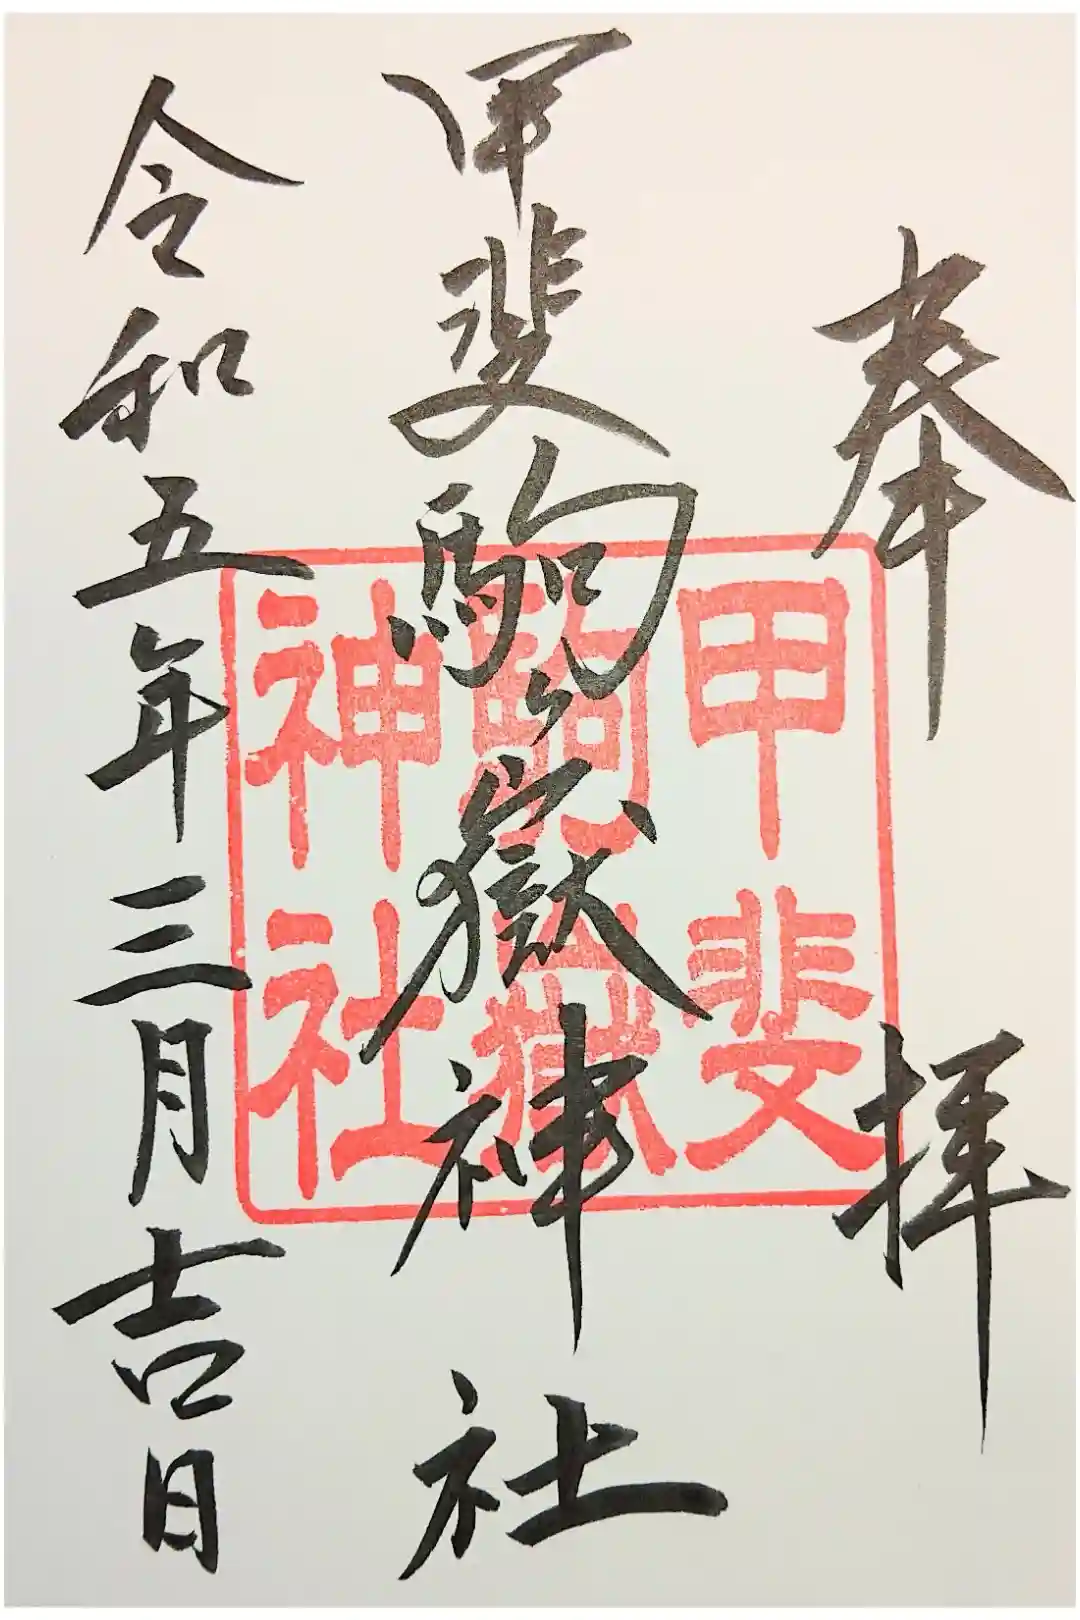 奉拝
甲斐駒ヶ嶽神社
令和五年三月吉日
甲斐
駒ヶ嶽
神社